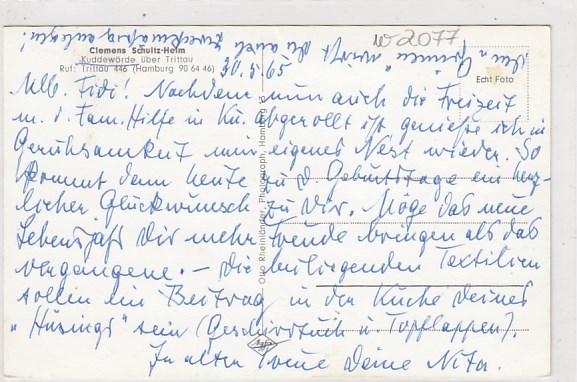 w 2077
Clemens Schultz-Heim
Kuddewörde über Trittau
Ruf: Trittau 446 (Hamburg 90 64 46)
Echt Foto
30.5.65
Mlb. Fidi! Nachdem nun auch die Freizeit
m. d. Fam. Hilfe in Ku. abgerollt ist, genieße ich in
Geruhsamkeit mein eigenes Nest wieder. So
kommt denn heute zu D. Geburtstage ein herz-
licher Glückwunsch zu Dir. Möge das neue
Lebensjahr Dir mehr Freude bringen als das
vergangene. – Die beiliegenden Textilien
sollen ein Beitrag in der Küche Deines
„Hüsings" sein (Geschirrtuch u. Topflappen).
In alter Treue Deine Nita.
Otto Rheinländer, Photograph, Hamburg
Agfa